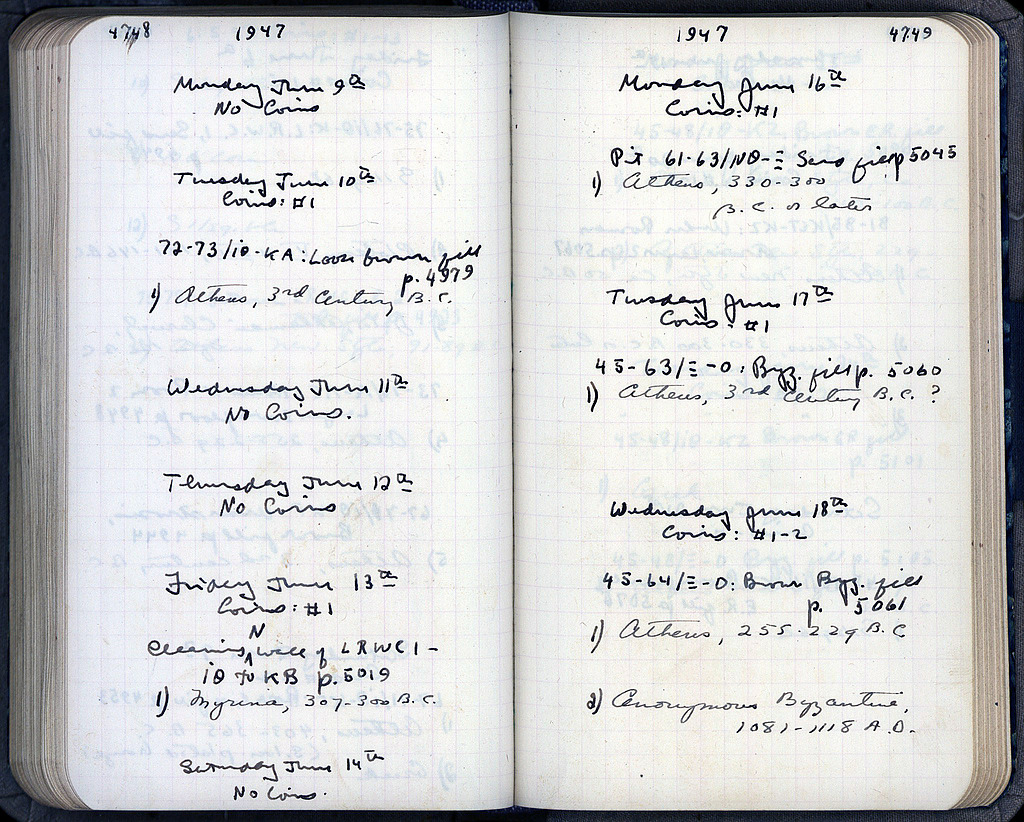 4748 1947
Monday June 9th
No Coins
Tuesday June 10th
Coins: #1
72-73/ΙΘ-ΚΑ: Loose brown fill
p. 4979
1) Athens, 3rd Century B.C.
Wednesday June 11th
No Coins.
Thursday June 12th
No Coins
Friday June 13th
Coins: #1
Cleaning N wall of LRWC 1 -
ΙΘ to ΚΒ p. 5019
1) Myrina, 307-300 B.C.
Saturday June 14th
No Coins.
1947 4749
Monday June 16th
Coins: #1
Pit 61-63/ΝΘ-Ξ Sand fill p 5045
1) Athens, 330-300
B.C. or later
Tuesday June 17th
Coins: #1
45-63/Ξ-Ο: Byz. fill p. 5060
1) Athens, 3rd Century B.C. ?
Wednesday June 18th
Coins: #1-2
45-64/Ξ-Ο: Brown Byz. fill
p. 5061
1) Athens, 255-229 B.C
2) Anonymous Byzantine,
1081-1118 A.D.